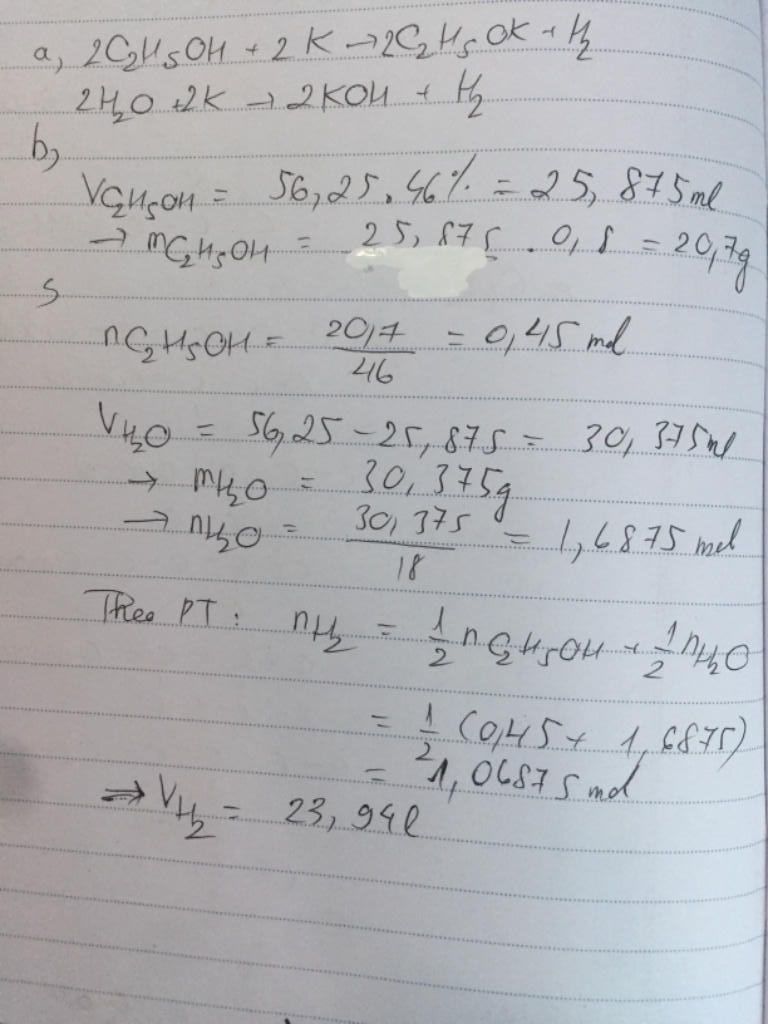 a, 2C₂H₅OH + 2K → 2C₂H₅OK + H₂
2H₂O + 2K → 2KOH + H₂
b,
V C₂H₅OH = 56,25 . 46% = 25,875ml
→ m C₂H₅OH = 25,875 . 0,8 = 20,7g
S
n C₂H₅OH = 20,7/46 = 0,45 mol
V H₂O = 56,25 - 25,875 = 30,375ml
→ m H₂O = 30,375g
→ n H₂O = 30,375/18 = 1,6875 mol
Theo PT : n H₂ = 1/2 n C₂H₅OH + 1/2 n H₂O
= 1/2 (0,45 + 1,6875)
= 1,06875 mol
⇒ V H₂ = 23,94l